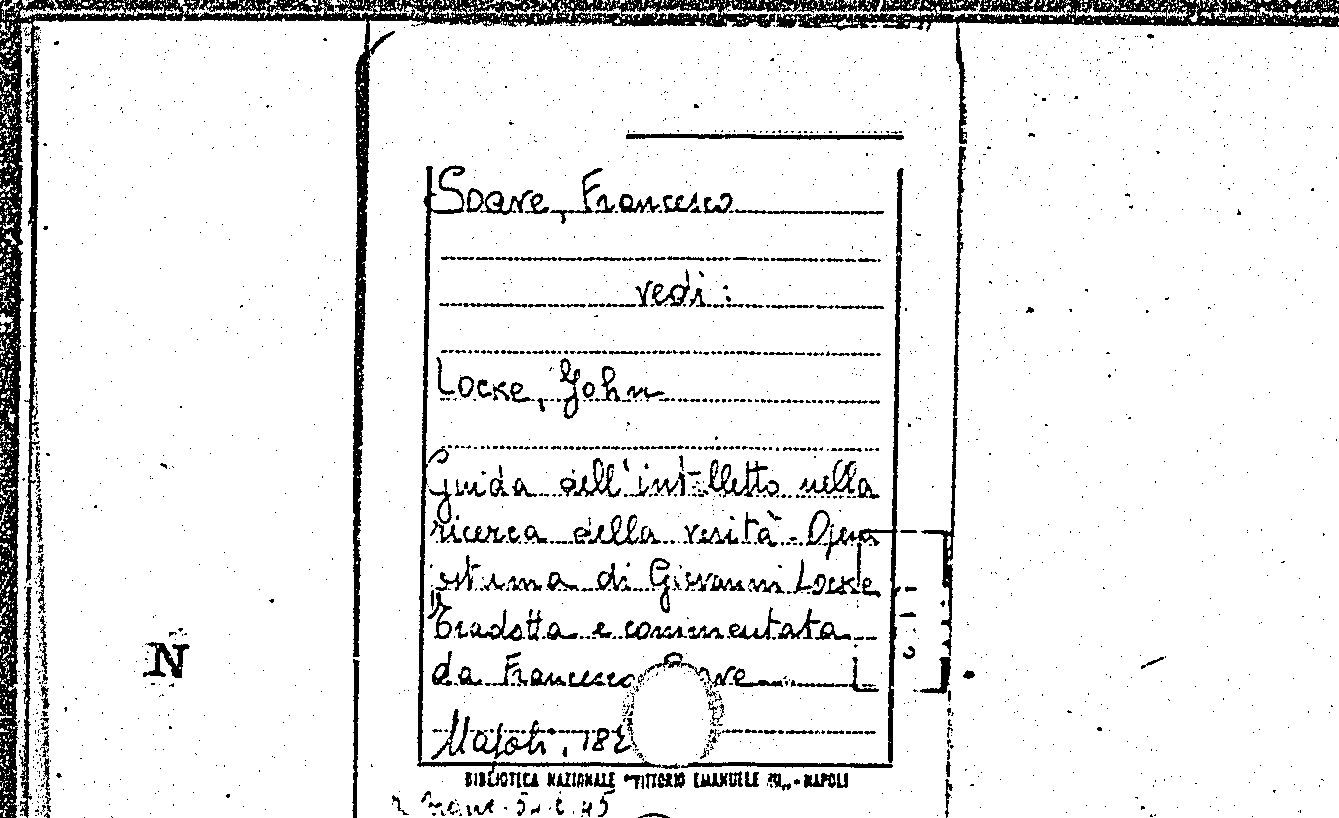 Soave, Francesco
vedi:
Locke, John
Guida dell'intelletto nella
ricerca della verità. Opera
postuma di Giovanni Locke
Tradotta e commentata
da Francesco Soave
Napoli, 182
BIBLIOTECA NAZIONALE "VITTORIO EMANUELE III" - NAPOLI
N